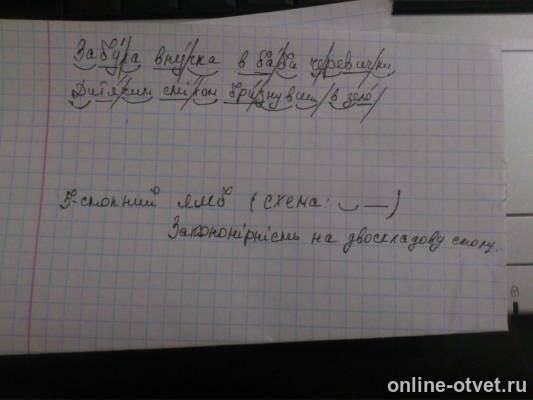 Забу/ла вну/чка в ба/би че/реви/чки
Дитя/чим смі/хом бри/знувши/ в село/
5-стопний ямб (схема: ◡ —)
Закономірність на двоскладову стопу.
online-otvet.ru